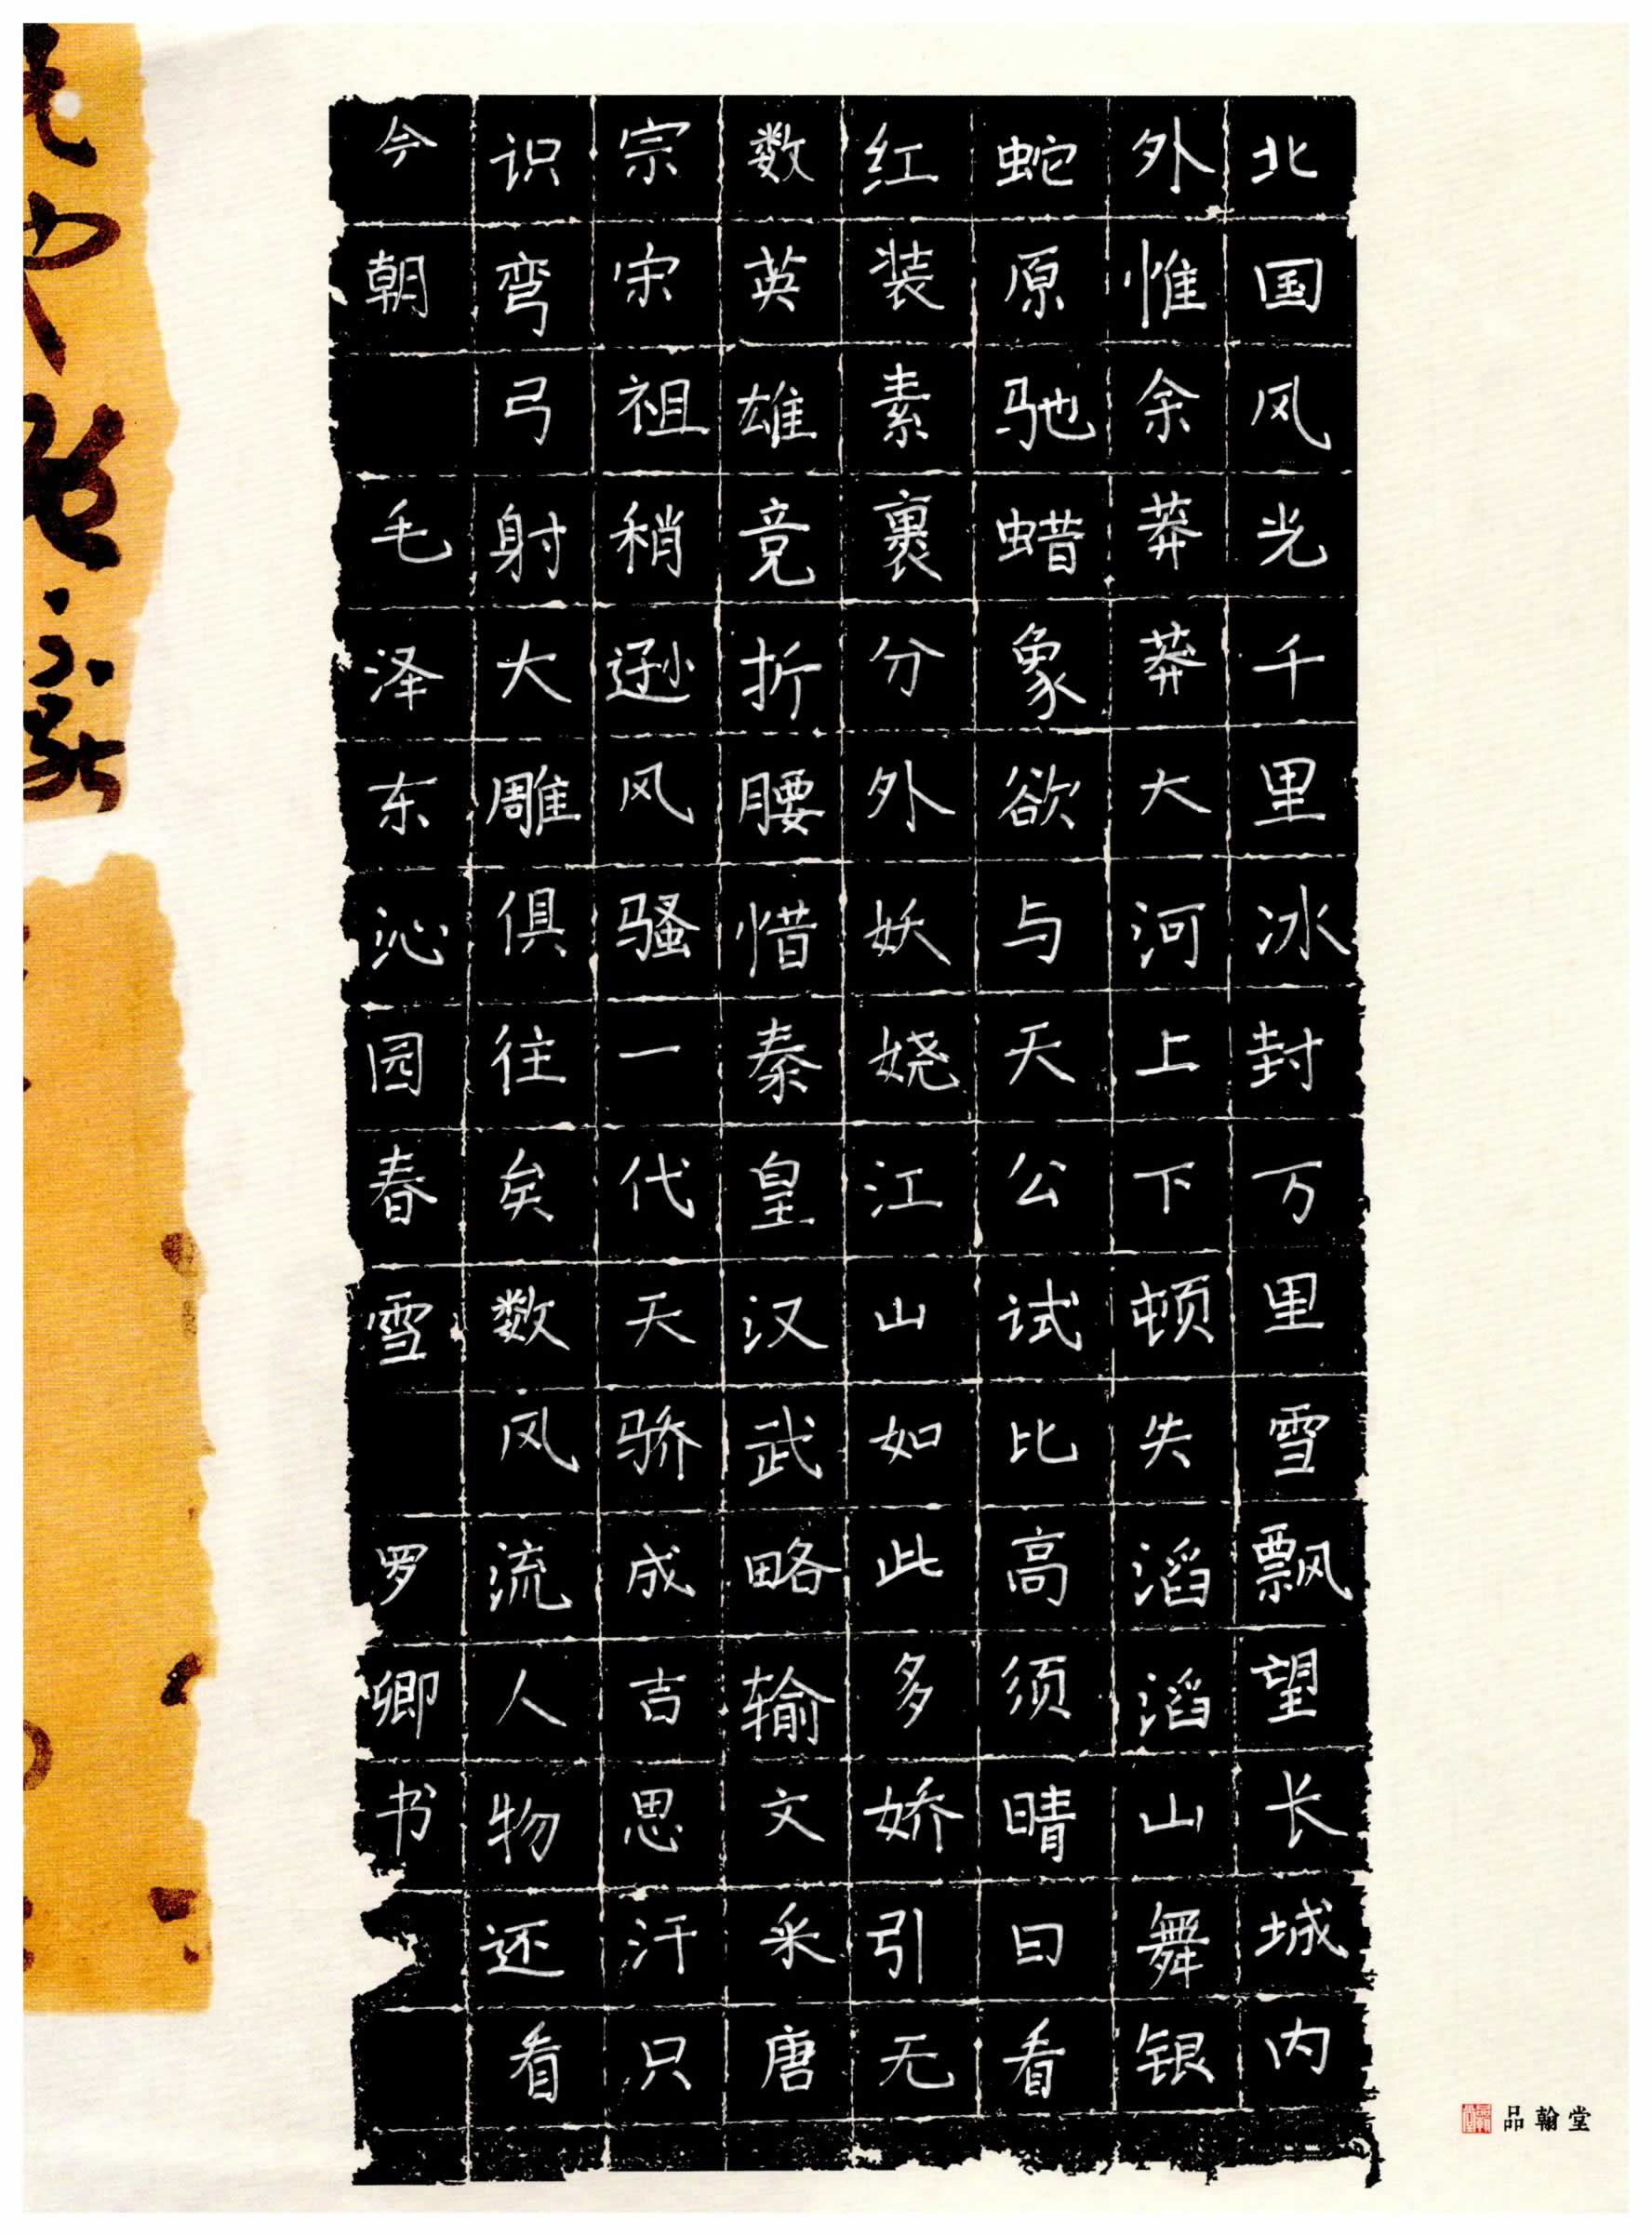 北国风光千里冰封万里雪飘望长城内
外惟余莽莽大河上下顿失滔滔山舞银
蛇原驰蜡象欲与天公试比高须晴日看
红装素裹分外妖娆江山如此多娇引无
数英雄竞折腰惜秦皇汉武略输文采唐
宗宋祖稍逊风骚一代天骄成吉思汗只
识弯弓射大雕俱往矣数风流人物还看
今朝 毛泽东沁园春雪 罗卿书
品翰堂